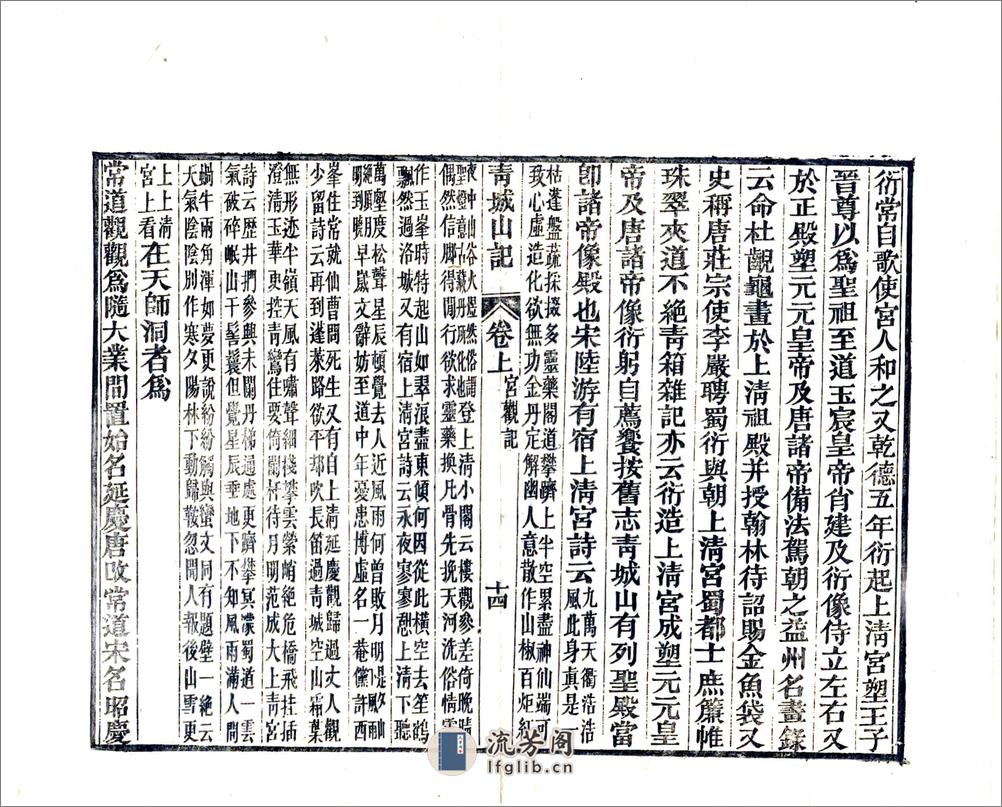 衍常自歌使宮人和之又乾德五年衍起上清宮塑王子
晉尊以爲聖祖至道玉宸皇帝肖建及衍像侍立左右又
於正殿塑元元皇帝及唐諸帝備法駕朝之益州名畫錄
云命杜齯龜畫於上清祖殿并授翰林待詔賜金魚袋又
史稱唐莊宗使李嚴聘蜀衍與朝上清宮蜀都士庶簾帷
珠翠夾道不絕青箱雜記亦云衍造上清宮成塑元元皇
帝及唐諸帝像衍躬自薦饗按舊志青城山有列聖殿當
卽諸帝像殿也宋陸游有宿上清宮詩云
九萬天衢浩浩
風此身眞是
枯蓬盤蔬采掇多靈藥閣道攀躋上半空累盡神仙端可
我心虛造化欲無功金丹定解幽人意散作山椒百炬紅
青城山記
卷上
宮觀記
十四
登上清小閣云樓觀參差倚晚晴
偶然信腳得閒行欲求靈藥換凡骨先挽天河洗俗情雲
作玉峯時特起山如翠浪盡東傾何因從此橫空去笙鶴
飄然過洛城又有宿上清宮詩云永夜寥寥憩上清下聽
萬壑度松聲星辰頓覺去人近風雨何曾敗月明
早歲文辭妨至道中年憂患博虛名一菴儻許西
峯住常就仙曹問死生又有自上清延慶觀歸過丈人觀
少留詩云再到蓬萊路欲平却吹長笛過青城空山霜葉
無形迹半嶺天風有嘯聲細棧攀雲縈峭絕危橋飛柱插
澄清玉華更控青鸞住要倚闌杆待月明范成大上青宮
詩云歷井捫參興未闌丹梯通處更躋攀冥濛蜀道一雲
氣破碎岷山千髻鬟但覺星辰垂地下不知風雨滿人間
蝸牛兩角渾如夢更說紛紛觸與蠻文同有題壁一絕云
天氣陰陰別作寒夕陽林下動歸鞍忽聞人報後山雪更
上上清
宮上看
在天師洞者爲
常道觀觀爲隨大業間置始名延慶唐改常道宋名昭慶